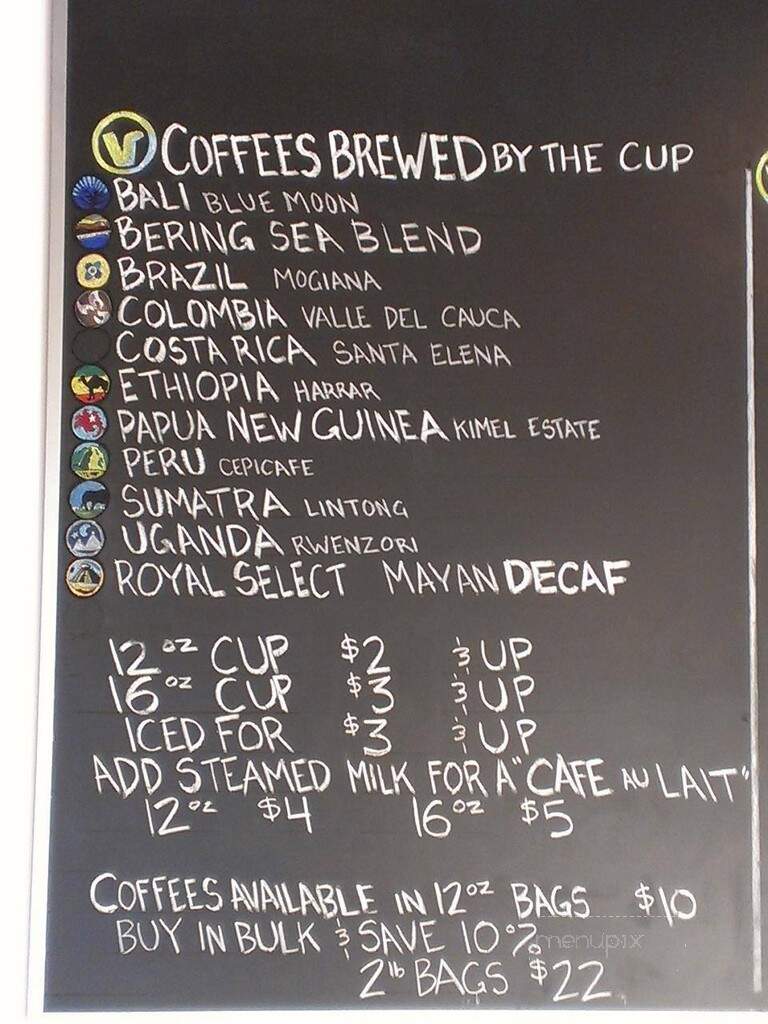 V COFFEES BREWED BY THE CUP
BALI BLUE MOON
BERING SEA BLEND
BRAZIL MOGIANA
COLOMBIA VALLE DEL CAUCA
COSTA RICA SANTA ELENA
ETHIOPIA HARRAR
PAPUA NEW GUINEA KIMEL ESTATE
PERU CEPICAFE
SUMATRA LINTONG
UGANDA RWENZORI
ROYAL SELECT MAYAN DECAF
12 OZ CUP $2 & UP
16 OZ CUP $3 & UP
ICED FOR $3 & UP
ADD STEAMED MILK FOR A "CAFE AU LAIT"
12 OZ $4 16 OZ $5
COFFEES AVAILABLE IN 12 OZ BAGS $10
BUY IN BULK & SAVE 10%
menupix
2 lb BAGS $22